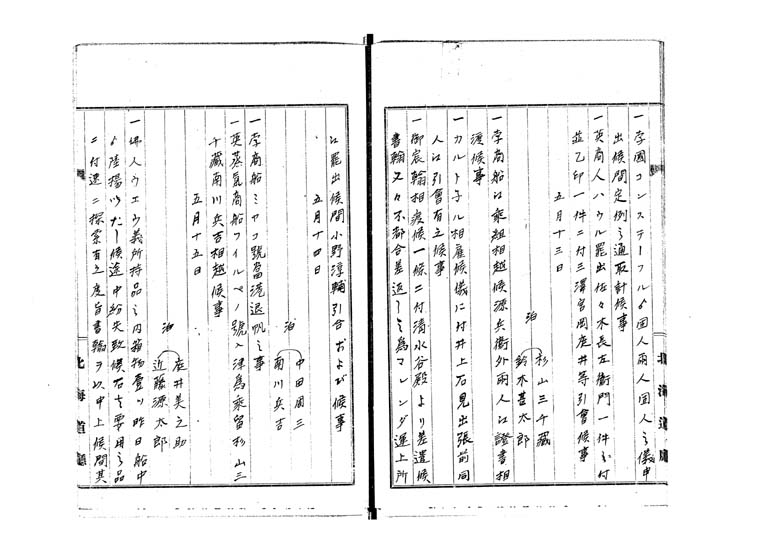 一孛國コンステーフルゟ囚人兩人囚人之儀申
出候間定例之通取計候事
一英商人ハウル罷出佐々木長左衞門一件ニ付
並乙印一件ニ付三澤宮岡庄井等引會候事
五月十三日
泊 杉山三千藏
鈴木甚太郎
一孛商船江乘組相越候源兵衞外兩人江證書相
渡候事
一カルト子ル相雇候儀に付井上石見出張前同
人江引會有之候事
一御宸翰相戻候一條ニ付清水谷殿より差遣候
書翰又々不都合差返しニ為マレンダ運上所
江罷出候間小野淳輔引合および候事
五月十四日
泊 中田周三
南川兵吉
一孛商船ミヤコ號當港退帆之事
一英蒸氣商船フイルペノ號入津為乘留杉山三
千藏南川兵吉相越候事
五月十五日
泊 庄井美之助
近藤源太郎
一佛人ウエウ義所持品之内箱物壹ツ昨日船中
ゟ陸揚いたし候途中紛失致候右者要用之品
ニ付速ニ探索有之度旨書翰ヲ以申上候間其
北海道廳
北海道廳